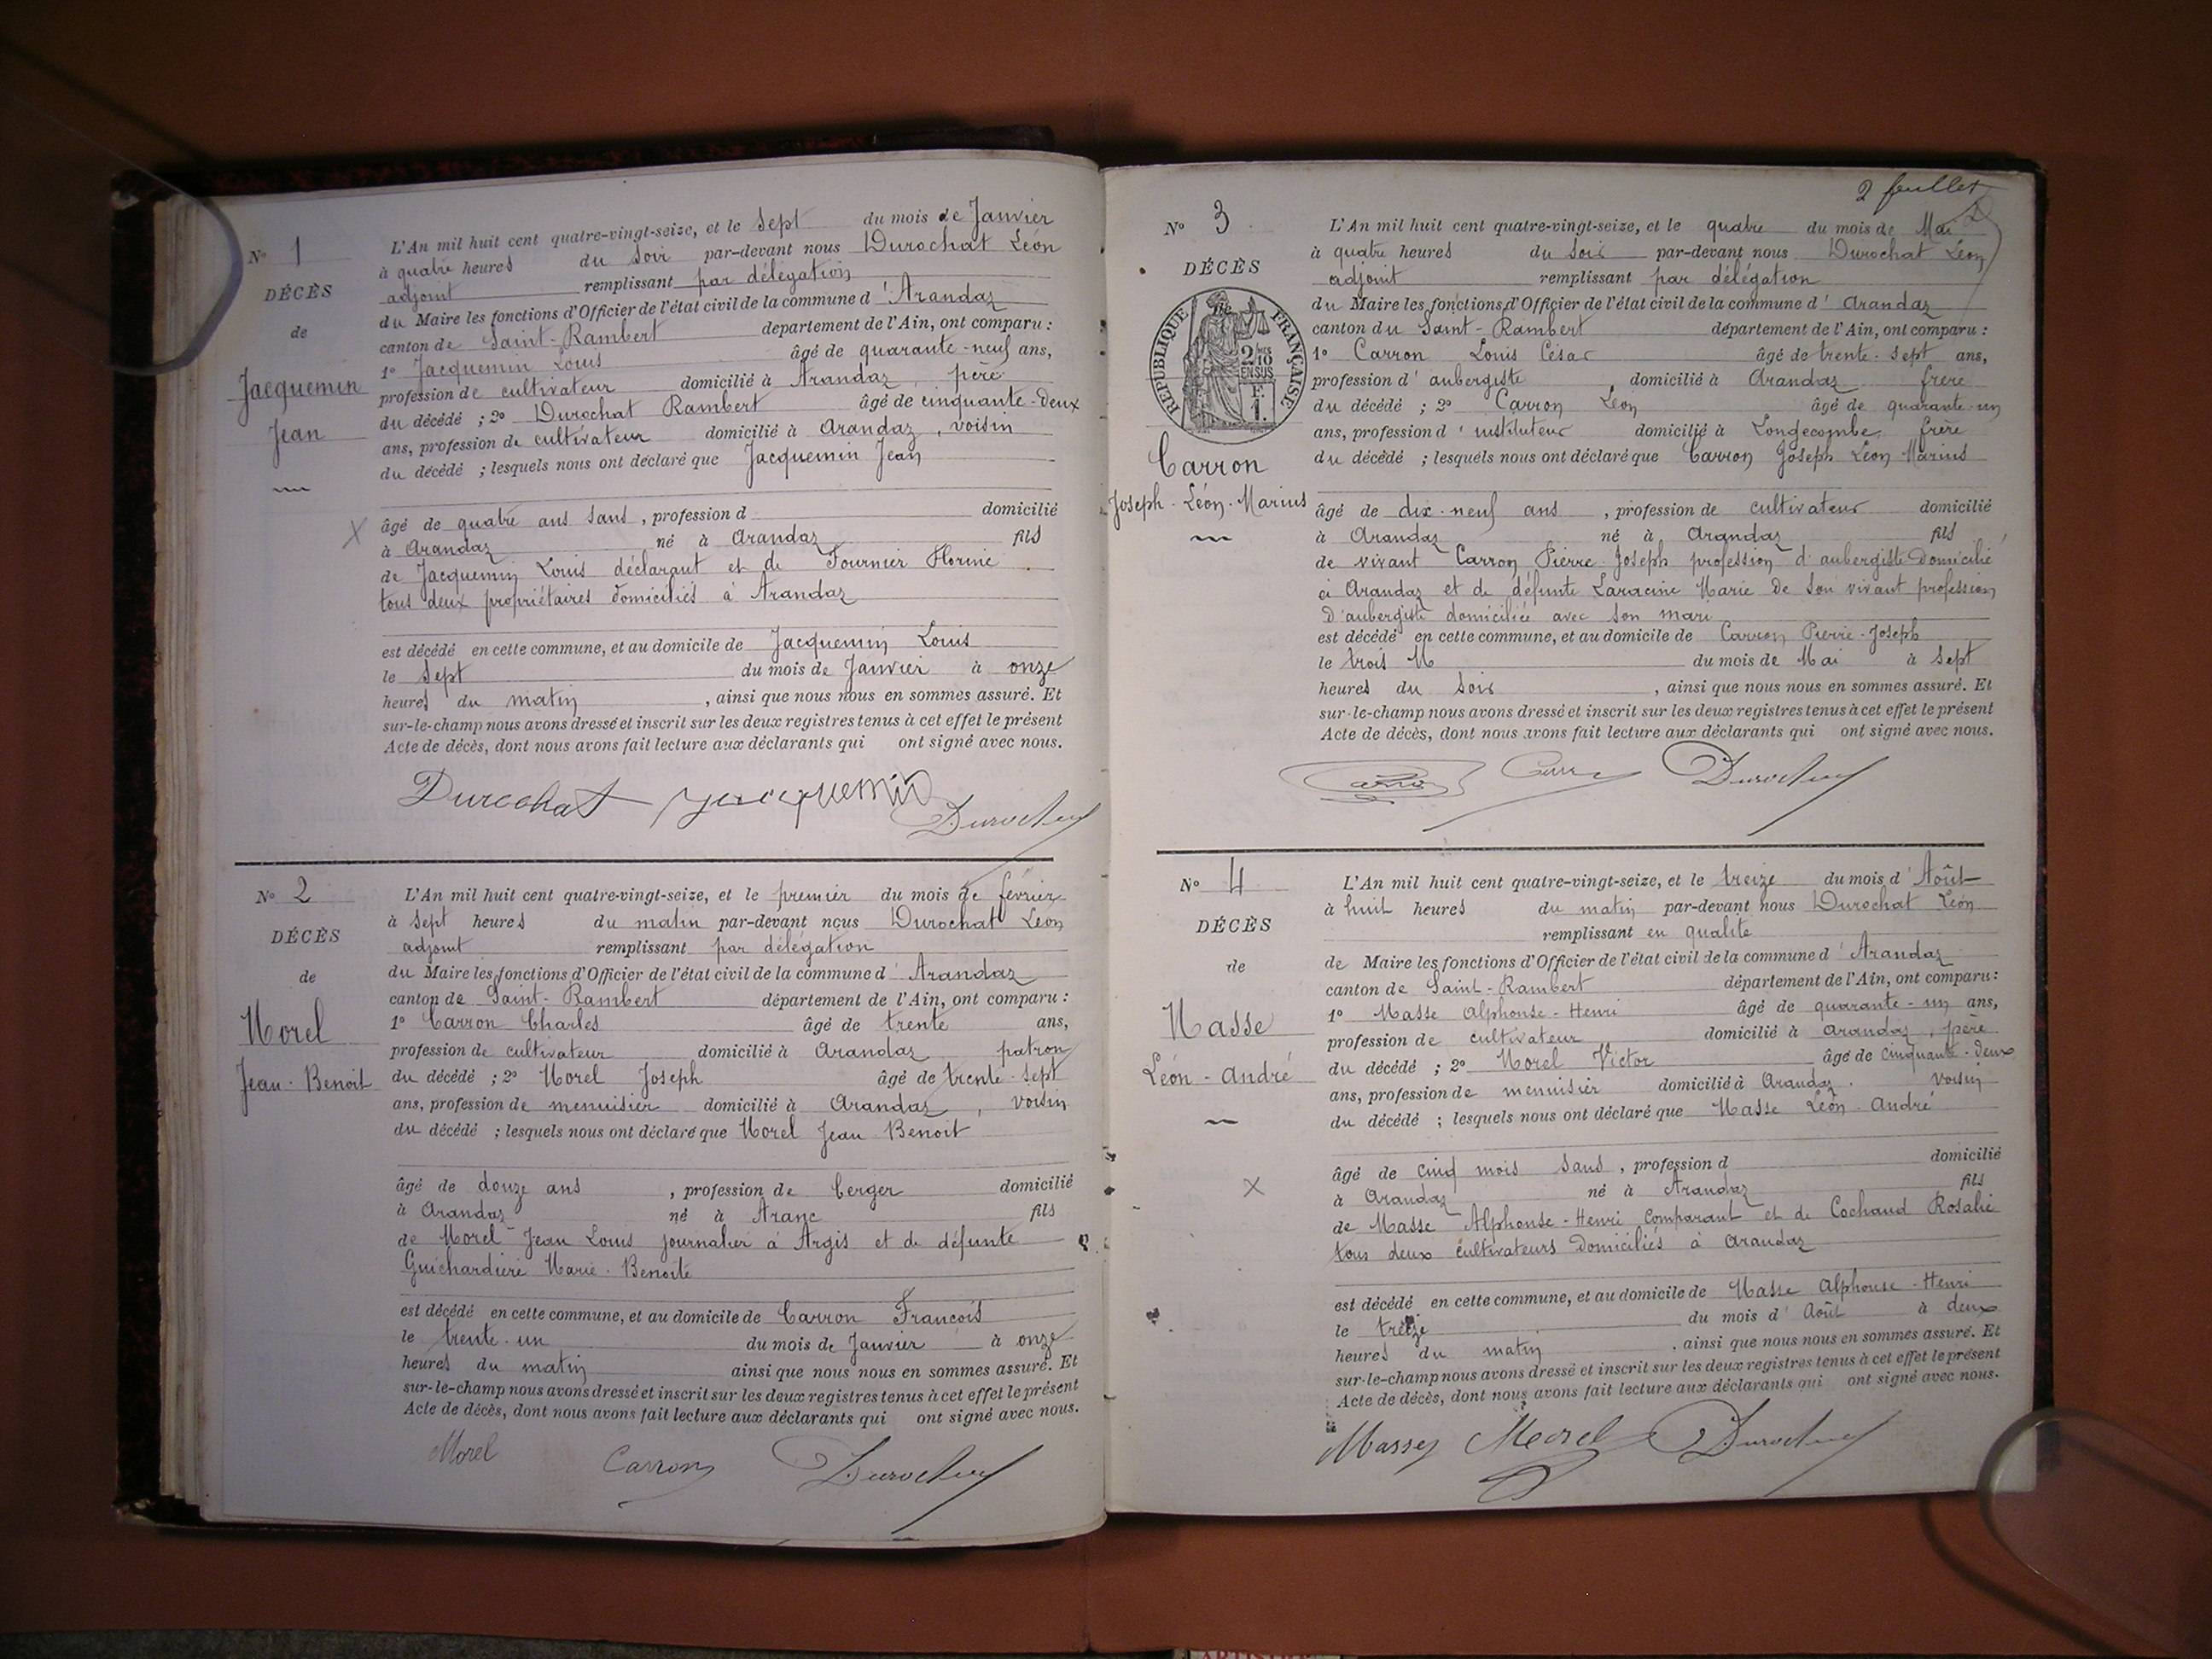 Nº 1
DÉCÈS
de
Jacquemin
Jean
L'An mil huit cent quatre-vingt-seize, et le sept du mois de Janvier
à quatre heures du soir par-devant nous Durochat Léon
adjoint remplissant par délégation
du Maire les fonctions d'Officier de l'état civil de la commune d'Arandaz
canton de Saint-Rambert département de l'Ain, ont comparu :
1º Jacquemin Louis âgé de quarante-neuf ans,
profession de cultivateur domicilié à Arandaz, père
du décédé ; 2º Durochat Rambert âgé de cinquante-deux
ans, profession de cultivateur domicilié à Arandaz, voisin
du décédé ; lesquels nous ont déclaré que Jacquemin Jean
âgé de quatre ans sans, profession d domicilié
à Arandaz né à Arandaz fils
de Jacquemin Louis déclarant et de Fournier Florine
tous deux propriétaires domiciliés à Arandaz
est décédé en cette commune, et au domicile de Jacquemin Louis
le sept du mois de Janvier à onze
heures du matin, ainsi que nous nous en sommes assuré. Et
sur-le-champ nous avons dressé et inscrit sur les deux registres tenus à cet effet le présent
Acte de décès, dont nous avons fait lecture aux déclarants qui ont signé avec nous.
Durochat Jacquemin Durochat
Nº 2
DÉCÈS
de
Morel
Jean-Benoit
L'An mil huit cent quatre-vingt-seize, et le premier du mois de février
à sept heures du matin par-devant nous Durochat Léon
adjoint remplissant par délégation
du Maire les fonctions d'Officier de l'état civil de la commune d'Arandaz
canton de Saint-Rambert département de l'Ain, ont comparu :
1º Carron Charles âgé de trente ans,
profession de cultivateur domicilié à Arandaz patron
du décédé ; 2º Morel Joseph âgé de trente-sept
ans, profession de menuisier domicilié à Arandaz, voisin
du décédé ; lesquels nous ont déclaré que Morel Jean Benoit
âgé de douze ans, profession de berger domicilié
à Arandaz né à Aranc fils
de Morel Jean Louis journalier à Argis et de défunte
Guichardière Marie-Benoite
est décédé en cette commune, et au domicile de Carron François
le trente-un du mois de Janvier à onze
heures du matin ainsi que nous nous en sommes assuré. Et
sur-le-champ nous avons dressé et inscrit sur les deux registres tenus à cet effet le présent
Acte de décès, dont nous avons fait lecture aux déclarants qui ont signé avec nous.
Morel Carron Durochat
2 feuillet
Nº 3
DÉCÈS
RÉPUBLIQUE FRANÇAISE
2/10 EN SUS
F. 1.
Carron
Joseph-Léon-Marius
L'An mil huit cent quatre-vingt-seize, et le quatre du mois de Mai
à quatre heures du soir par-devant nous Durochat Léon
adjoint remplissant par délégation
du Maire les fonctions d'Officier de l'état civil de la commune d'Arandaz
canton du Saint-Rambert département de l'Ain, ont comparu :
1º Carron Louis César âgé de trente-sept ans,
profession d'aubergiste domicilié à Arandaz frère
du décédé ; 2º Carron Léon âgé de quarante-un
ans, profession d'instituteur domicilié à Longecombe, frère
du décédé ; lesquels nous ont déclaré que Carron Joseph Léon Marius
âgé de dix-neuf ans, profession de cultivateur domicilié
à Arandaz né à Arandaz fils
de vivant Carron Pierre Joseph profession d'aubergiste domicilié
à Arandaz et de défunte Laracine Marie de son vivant profession
d'aubergiste domiciliée avec son mari
est décédé en cette commune, et au domicile de Carron Pierre-Joseph
le trois M du mois de Mai à sept
heures du soir, ainsi que nous nous en sommes assuré. Et
sur-le-champ nous avons dressé et inscrit sur les deux registres tenus à cet effet le présent
Acte de décès, dont nous avons fait lecture aux déclarants qui ont signé avec nous.
Durochat
Nº 4
DÉCÈS
de
Masse
Léon-André
L'An mil huit cent quatre-vingt-seize, et le treize du mois d'Août
à huit heures du matin par-devant nous Durochat Léon
remplissant en qualité
de Maire les fonctions d'Officier de l'état civil de la commune d'Arandaz
canton de Saint-Rambert département de l'Ain, ont comparu :
1º Masse Alphonse-Henri âgé de quarante-un ans,
profession de cultivateur domicilié à Arandaz, père
du décédé ; 2º Morel Victor âgé de cinquante-deux
ans, profession de menuisier domicilié à Arandaz. voisin
du décédé ; lesquels nous ont déclaré que Masse Léon-André
âgé de cinq mois sans, profession d domicilié
à Arandaz né à Arandaz fils
de Masse Alphonse-Henri comparant et de Cochaud Rosalie
tous deux cultivateurs domiciliés à Arandaz
est décédé en cette commune, et au domicile de Masse Alphonse-Henri
le treize du mois d'Août à deux
heures du matin, ainsi que nous nous en sommes assuré. Et
sur-le-champ nous avons dressé et inscrit sur les deux registres tenus à cet effet le présent
Acte de décès, dont nous avons fait lecture aux déclarants qui ont signé avec nous.
Masse Morel Durochat